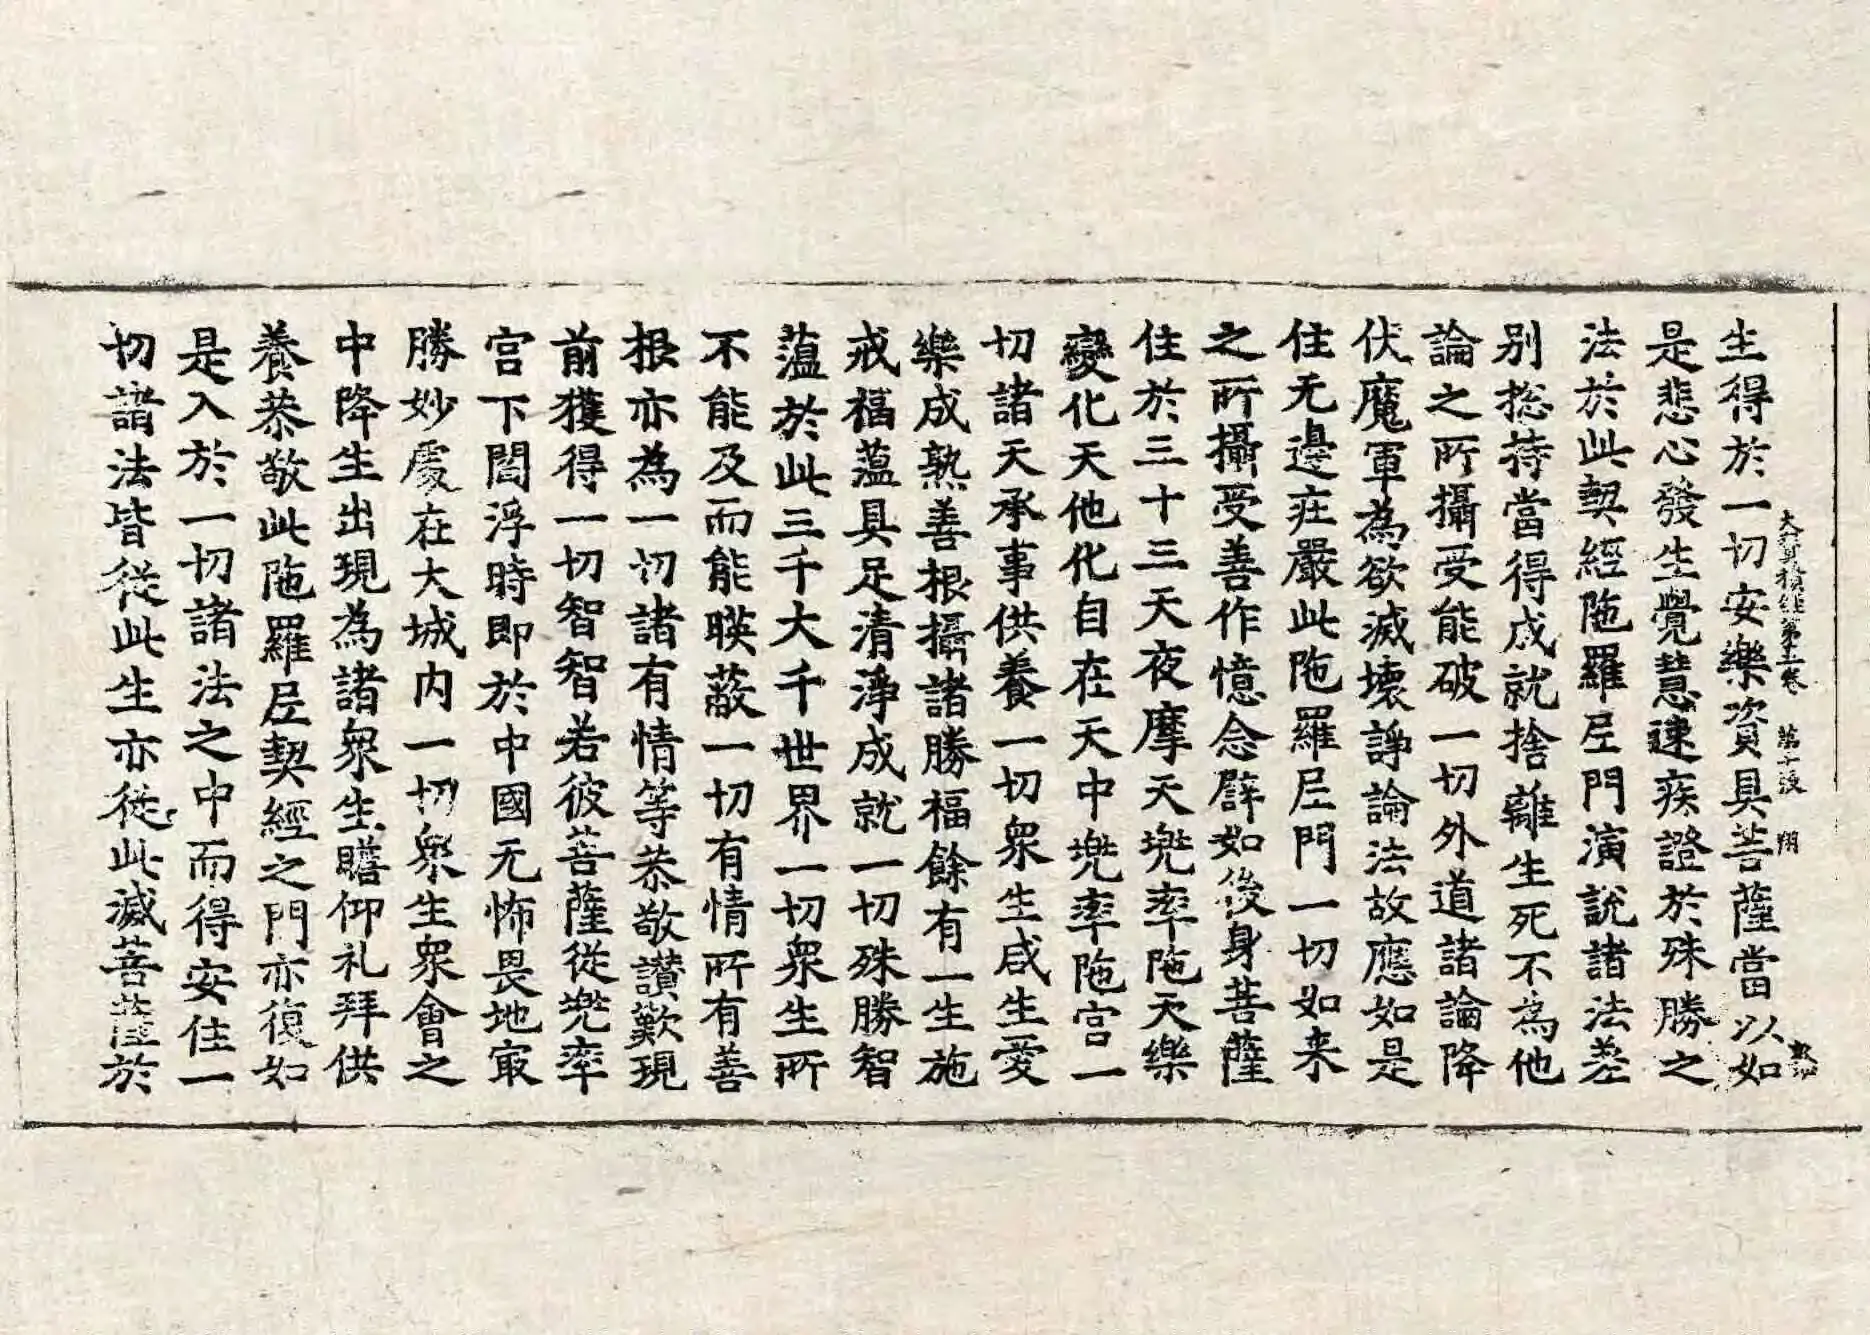 生得於一切安樂資具菩薩當以如
是悲心發生覺慧速疾證於殊勝之
法於此契經陁羅尼門演說諸法差
別揔持當得成就捨離生死不為他
論之所攝受能破一切外道諸論降
伏魔軍為欲滅壞諍論法故應如是
住无邊莊嚴此陁羅尼門一切如来
之所攝受善作憶念譬如後身菩薩
住於三十三天夜摩天兠率陁天樂
變化天他化自在天中兠率陁宫一
切諸天承事供養一切衆生咸生愛
樂成熟善根攝諸勝福餘有一生施
戒福蕰具足清淨成就一切殊勝智
蕰於此三千大千世界一切衆生所
不能及而能暎蔽一切有情所有善
根亦為一切諸有情等恭敬讃歎現
前獲得一切智智若彼菩薩從兠率
宫下閻浮時即於中國无怖畏地冣
勝妙處在大城内一切衆生衆會之
中降生出現為諸衆生瞻仰礼拜供
養恭敬此陁羅尼契經之門亦復如
是入於一切諸法之中而得安住一
切諸法皆從此生亦從此滅菩薩於